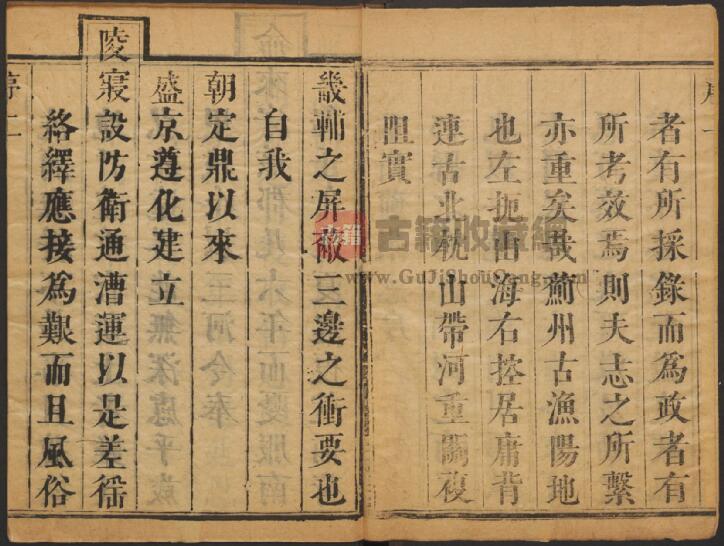 者有所採錄而爲政者有
所考效焉則夫志之所繫
亦重矣哉薊州古漁陽地
也左扼山海右控居庸背
連古北枕山帶河重關複
阻實
畿輔之屏儼三邊之衝要也
自我
朝定鼎以來
盛京遵化建立
陵寢設防衛通漕運以是差徭
絡繹應接爲艱而且風俗
序二
古籍
古籍收藏網
www.GuJiShouCang.com